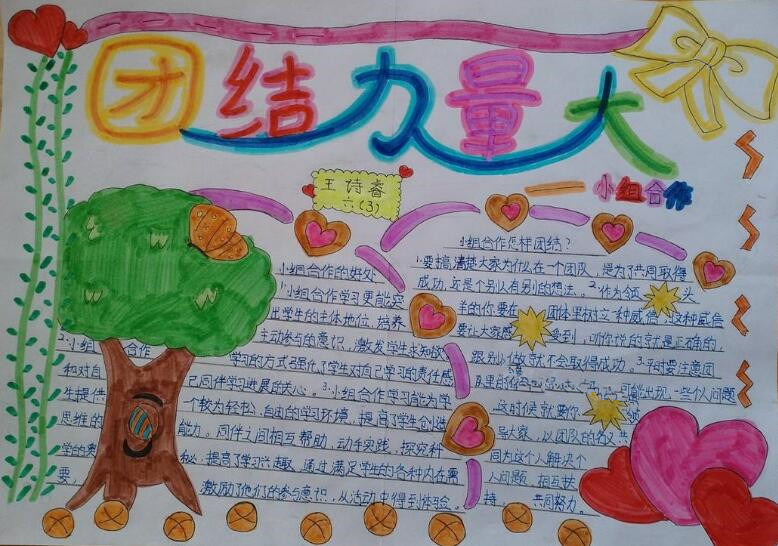 团结力量大
——小组合作
王诗睿
六(3)
小组合作的好处
1.小组合作学习更能突
出学生的主体地位,培养
主动参与的意识,激发学生求知欲
2.小组合作
学习的方式强化了学生对自己学习的责任感
和对自己同伴学习进展的关心。3.小组合作学习能为学
生提供一个较为轻松、自由的学习环境,提高了学生创造
思维的能力。同伴之间相互帮助,动手实践,探究科
学的奥秘,提高了学习兴趣,通过满足学生的各种内在需
要,激励了他们的参与意识,从活动中得到体验。
小组合作怎样团结?
1.要搞清楚大家为什么在一个团队,是为了共同取得
成功,还是个别人有别的想法。2.作为领头
羊的你,要在团体里树立一种威信,这种威信
要让大家感受到,听你说的就是正确的,
跟别人做就不会取得成功。3.平时要注意团
可能出现一些个人问题
这时候就要你
导大家,以团队的名义共
同为这个人解决个
人问题,相互扶
持,共同努力。